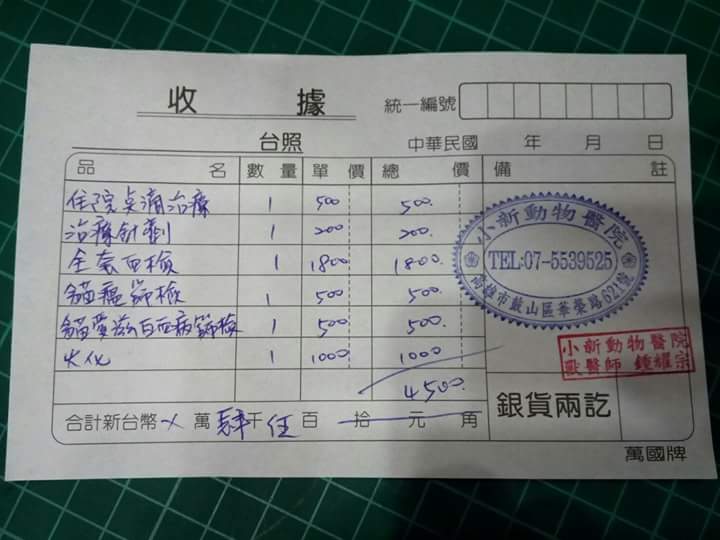 收據
統一編號
台照 中華民國 年 月 日
品名 數量 單價 總價 備註
住院點滴治療 1 500 500.
治療針劑 1 200 200.
全套血檢 1 1800 1800.
貓瘟篩檢 1 500 500.
貓愛滋白血病篩檢 1 500 500.
火化 1 1000 1000
4500.
合計新台幣 萬 肆千 伍百 拾 元 角
銀貨兩訖
小新動物醫院
TEL:07-5539525
高雄市鼓山區華榮路621號
小新動物醫院
獸醫師 鍾耀宗
萬國牌